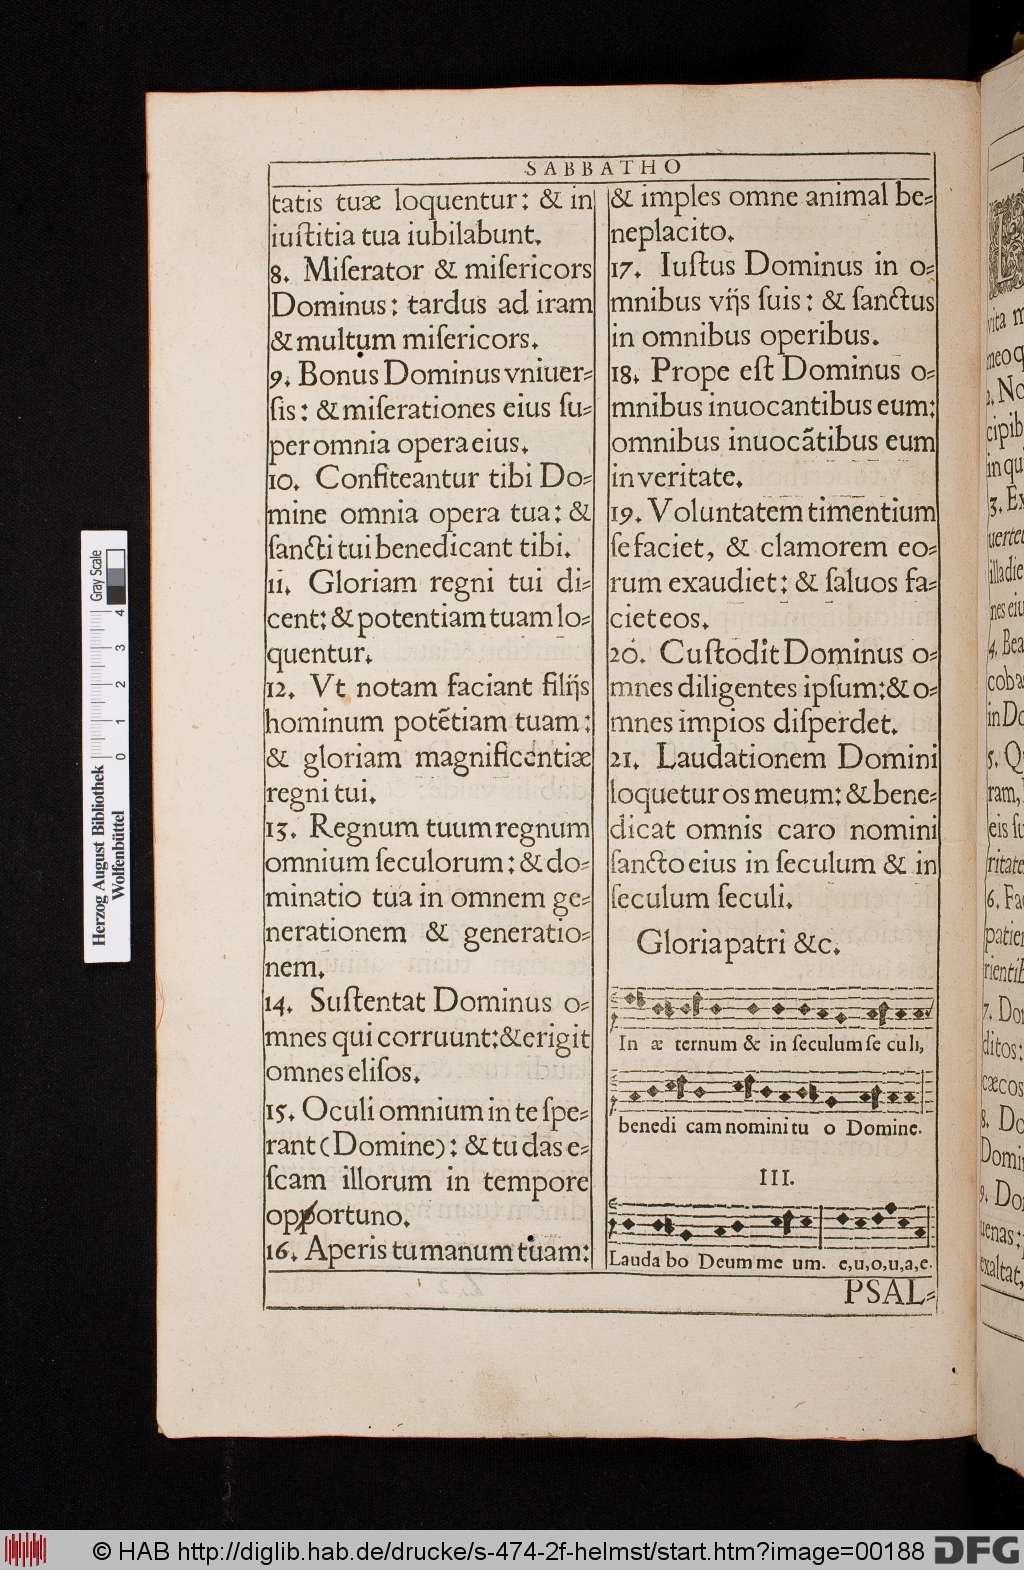 SABBATHO
tatis tuæ loquentur: & in
iuſtitia tua iubilabunt.
8. Miſerator & miſericors
Dominus: tardus ad iram
& multum miſericors.
9. Bonus Dominus vniuer=
ſis: & miſerationes eius ſu=
per omnia opera eius.
10. Confiteantur tibi Do=
mine omnia opera tua: &
ſancti tui benedicant tibi.
11. Gloriam regni tui di=
cent: & potentiam tuam lo=
quentur.
12. Vt notam faciant filijs
hominum potẽtiam tuam:
& gloriam magnificentiæ
regni tui.
13. Regnum tuum regnum
omnium ſeculorum: & do=
minatio tua in omnem ge=
nerationem & generatio=
nem.
14. Suſtentat Dominus o=
mnes qui corruunt: & erigit
omnes eliſos.
15. Oculi omnium in te ſpe=
rant (Domine): & tu das e=
ſcam illorum in tempore
opportuno.
16. Aperis tu manum tuam:
& imples omne animal be=
neplacito.
17. Iuſtus Dominus in o=
mnibus vijs ſuis: & ſanctus
in omnibus operibus.
18. Prope eſt Dominus o=
mnibus inuocantibus eum:
omnibus inuocãtibus eum
in veritate.
19. Voluntatem timentium
ſe faciet, & clamorem eo=
rum exaudiet: & ſaluos fa=
ciet eos.
20. Cuſtodit Dominus o=
mnes diligentes ipſum: & o=
mnes impios diſperdet.
21. Laudationem Domini
loquetur os meum: & bene=
dicat omnis caro nomini
ſancto eius in ſeculum & in
ſeculum ſeculi.
Gloria patri &c.
In æ ternum & in ſeculum ſe culi,
benedi cam nomini tu o Domine.
III.
Lauda bo Deum me um. e,u,o,u,a,e.
PSAL=
vita m
meo q
2. No
cipib
in qui
3. Ex
uertet
illa die
nes eiu
4. Bea
cob a
in Do
5. Q
ram,
eis ſu
ritate
6. Fa
patien
rientib
7. Do
ditos:
cæcos
8. Do
Domi
9. Do
uenas:
exaltat,
Gray Scale
0 1 2 3 4
Herzog August Bibliothek
Wolfenbüttel
© HAB http://diglib.hab.de/drucke/s-474-2f-helmst/start.htm?image=00188
DFG